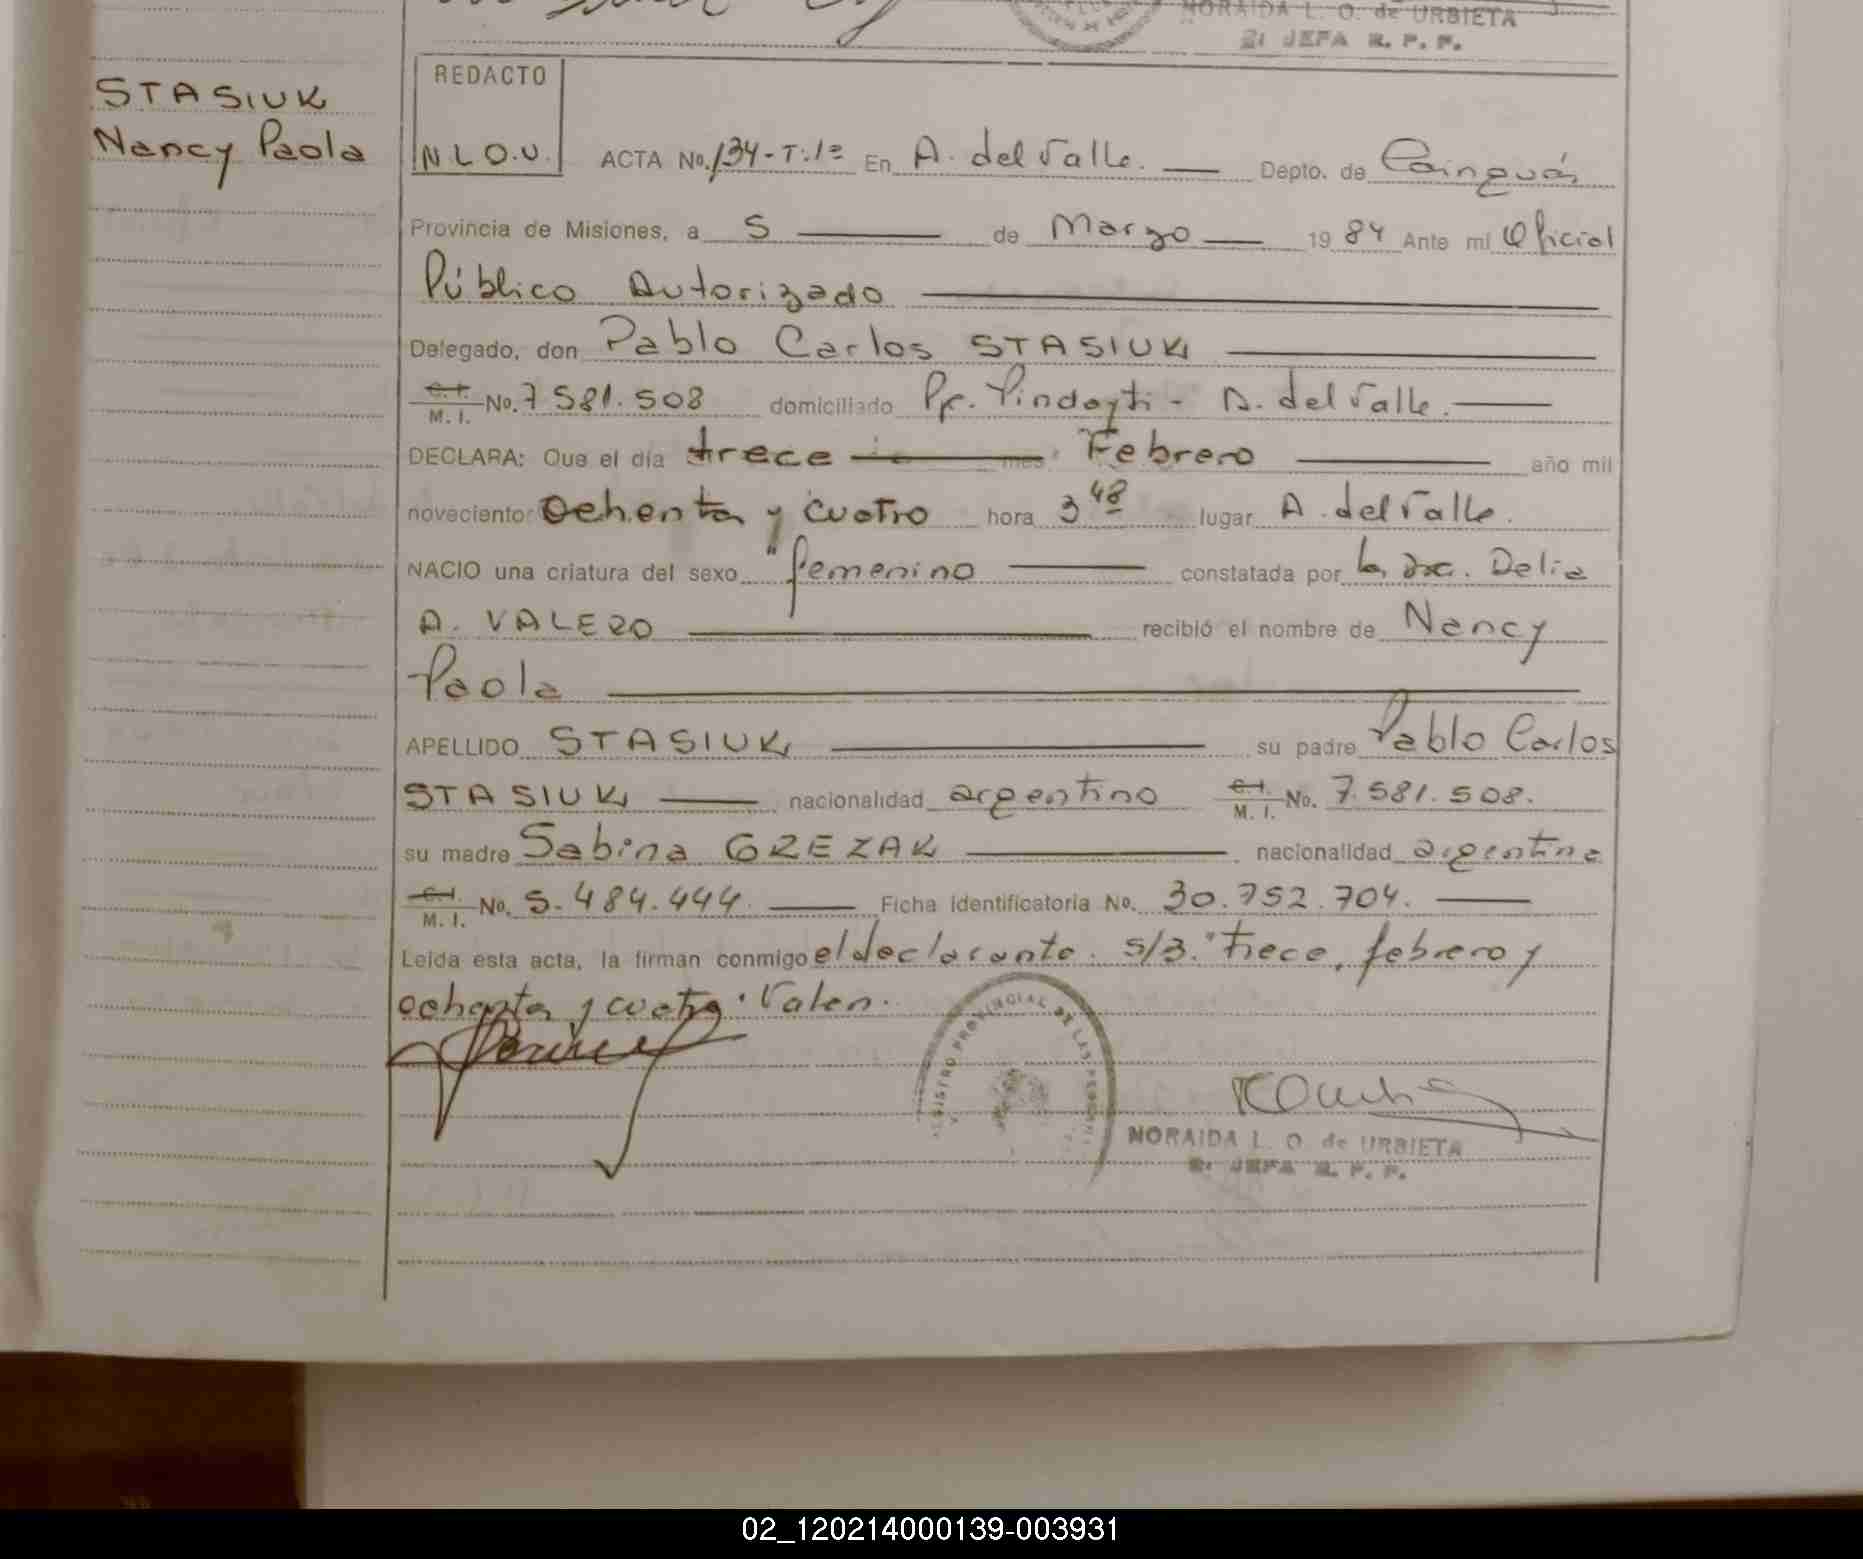 NORAIDA L. O. de URBIETA
2: JEFA R. P. P.
STASIUK
Nancy Paola
REDACTO
N L O. U.
ACTA No. 134-T:1º En A. del Valle. Depto. de Cainguás
Provincia de Misiones, a 5 de Marzo 19 84 Ante mi Oficial
Público Autorizado
Delegado, don Pablo Carlos STASIUK
C.I. M. I. No. 7 581. 508 domiciliado Pje. Pindayti - A. del Valle.
DECLARA: Que el día trece mes Febrero año mil
noveciento ochenta y cuatro hora 3 48 lugar A. del Valle.
NACIO una criatura del sexo femenino constatada por la Dra. Delia
A. VALERO recibió el nombre de Nancy
Paola
APELLIDO STASIUK su padre Pablo Carlos
STASIUK nacionalidad argentino C.I. M. I. No. 7.581.508.
su madre Sabina GREZAK nacionalidad argentina
C.I. M. I. No. 5.484.444. Ficha identificatoria No. 30.752.704.
Leída esta acta, la firman conmigo el declarante. s/3. "trece, febrero y
ochenta y cuatro" Valen.
REGISTRO PROVINCIAL DE LAS PERSONAS
NORAIDA L. O. de URBIETA
2: JEFA R. P. P.
02_120214000139-003931